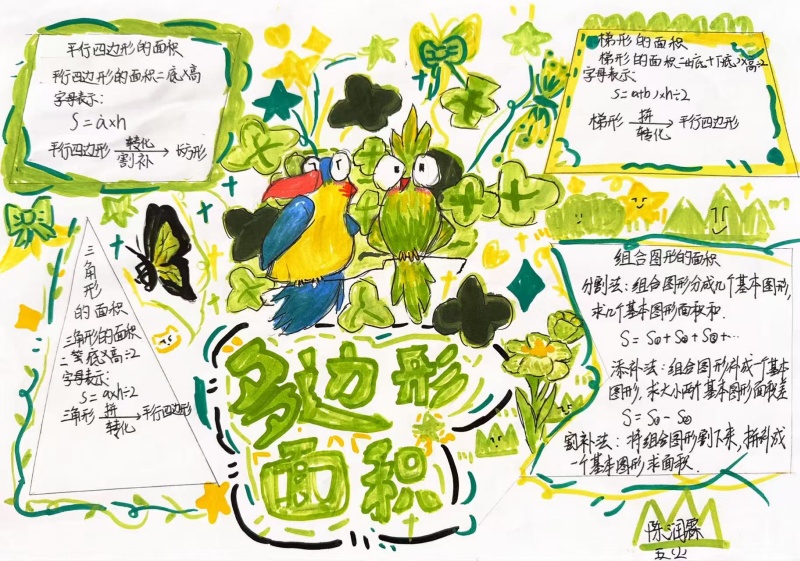 平行四边形的面积
平行四边形的面积=底×高
字母表示:
S=a×h
平行四边形 转化 割补 → 长方形
梯形的面积
梯形的面积=(上底+下底)×高÷2
字母表示:
S=(a+b)×h÷2
梯形 拼 转化 → 平行四边形
三角形的面积
三角形的面积
=底×高÷2
字母表示:
S=a×h÷2
三角形 拼 转化 → 平行四边形
多边形
面积
组合图形的面积
分割法:组合图形分成几个基本图形,
求几个基本图形面积和.
S=S①+S②+S③+…
添补法:组合图形补成一个基本
图形,求大小两个基本图形面积差
S=S①-S②
割补法:将组合图形割下来,拼补成
一个基本图形求面积.
陈润霖